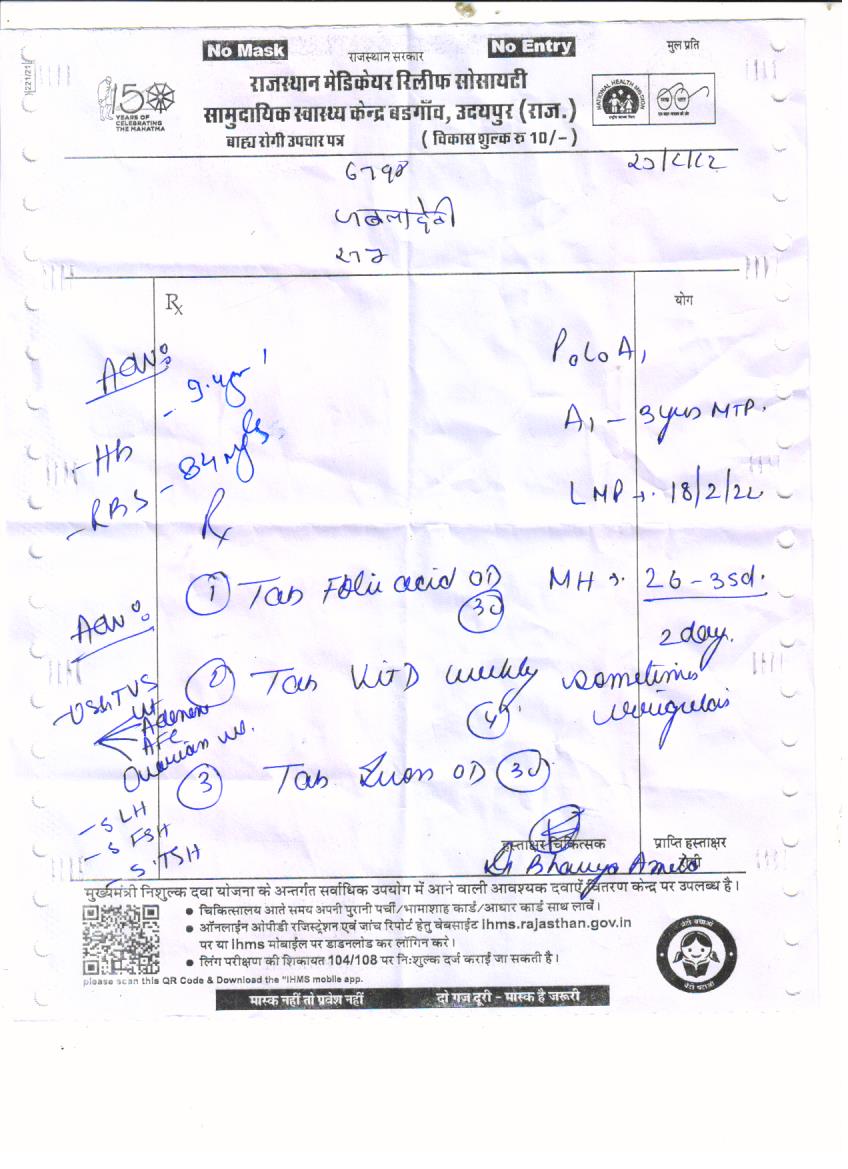 No Mask
राजस्थान सरकार
No Entry
मुल प्रति
राजस्थान मेडिकेयर रिलीफ सोसायटी
सामुदायिक स्वास्थ्य केन्द्र बडगाँव, उदयपुर (राज.)
बाह्य रोगी उपचार पत्र ( विकास शुल्क रु 10/- )
150
YEARS OF
CELEBRATING
THE MAHATMA
NATIONAL HEALTH MISSION
Rx
योग
Adv:
P0L0A1
A1 - 3 yrs MTP.
- Hb -
- RBS - 84 mg
LMP → 18/2/22
Rx
① Tab Folic acid OD
30
MH → 26 - 35d.
2 day.
Adv:
② Tab Vit D weekly
4
sometimes
irregular
- USG TVS
Ut
AFC
Ovarian
③ Tab Iron OD 30
- S LH
- S FSH
- S. TSH
हस्ताक्षर चिकित्सक
प्राप्ति हस्ताक्षर
रोगी
Dr Bhavya
मुख्यमंत्री निशुल्क दवा योजना के अन्तर्गत सर्वाधिक उपयोग में आने वाली आवश्यक दवाऐं वितरण केन्द्र पर उपलब्ध है।
● चिकित्सालय आते समय अपनी पुरानी पर्ची/भामाशाह कार्ड/आधार कार्ड साथ लावें।
● ऑनलाईन ओपीडी रजिस्ट्रेशन एवं जांच रिपोर्ट हेतु वेबसाईट ihms.rajasthan.gov.in
पर या ihms मोबाईल पर डाडनलोड कर लॉगिन करे।
● लिंग परीक्षण की शिकायत 104/108 पर नि:शुल्क दर्ज कराई जा सकती है।
please scan this QR Code & Download the "IHMS mobile app.
मास्क नहीं तो प्रवेश नहीं
दो गज दूरी - मास्क है जरूरी